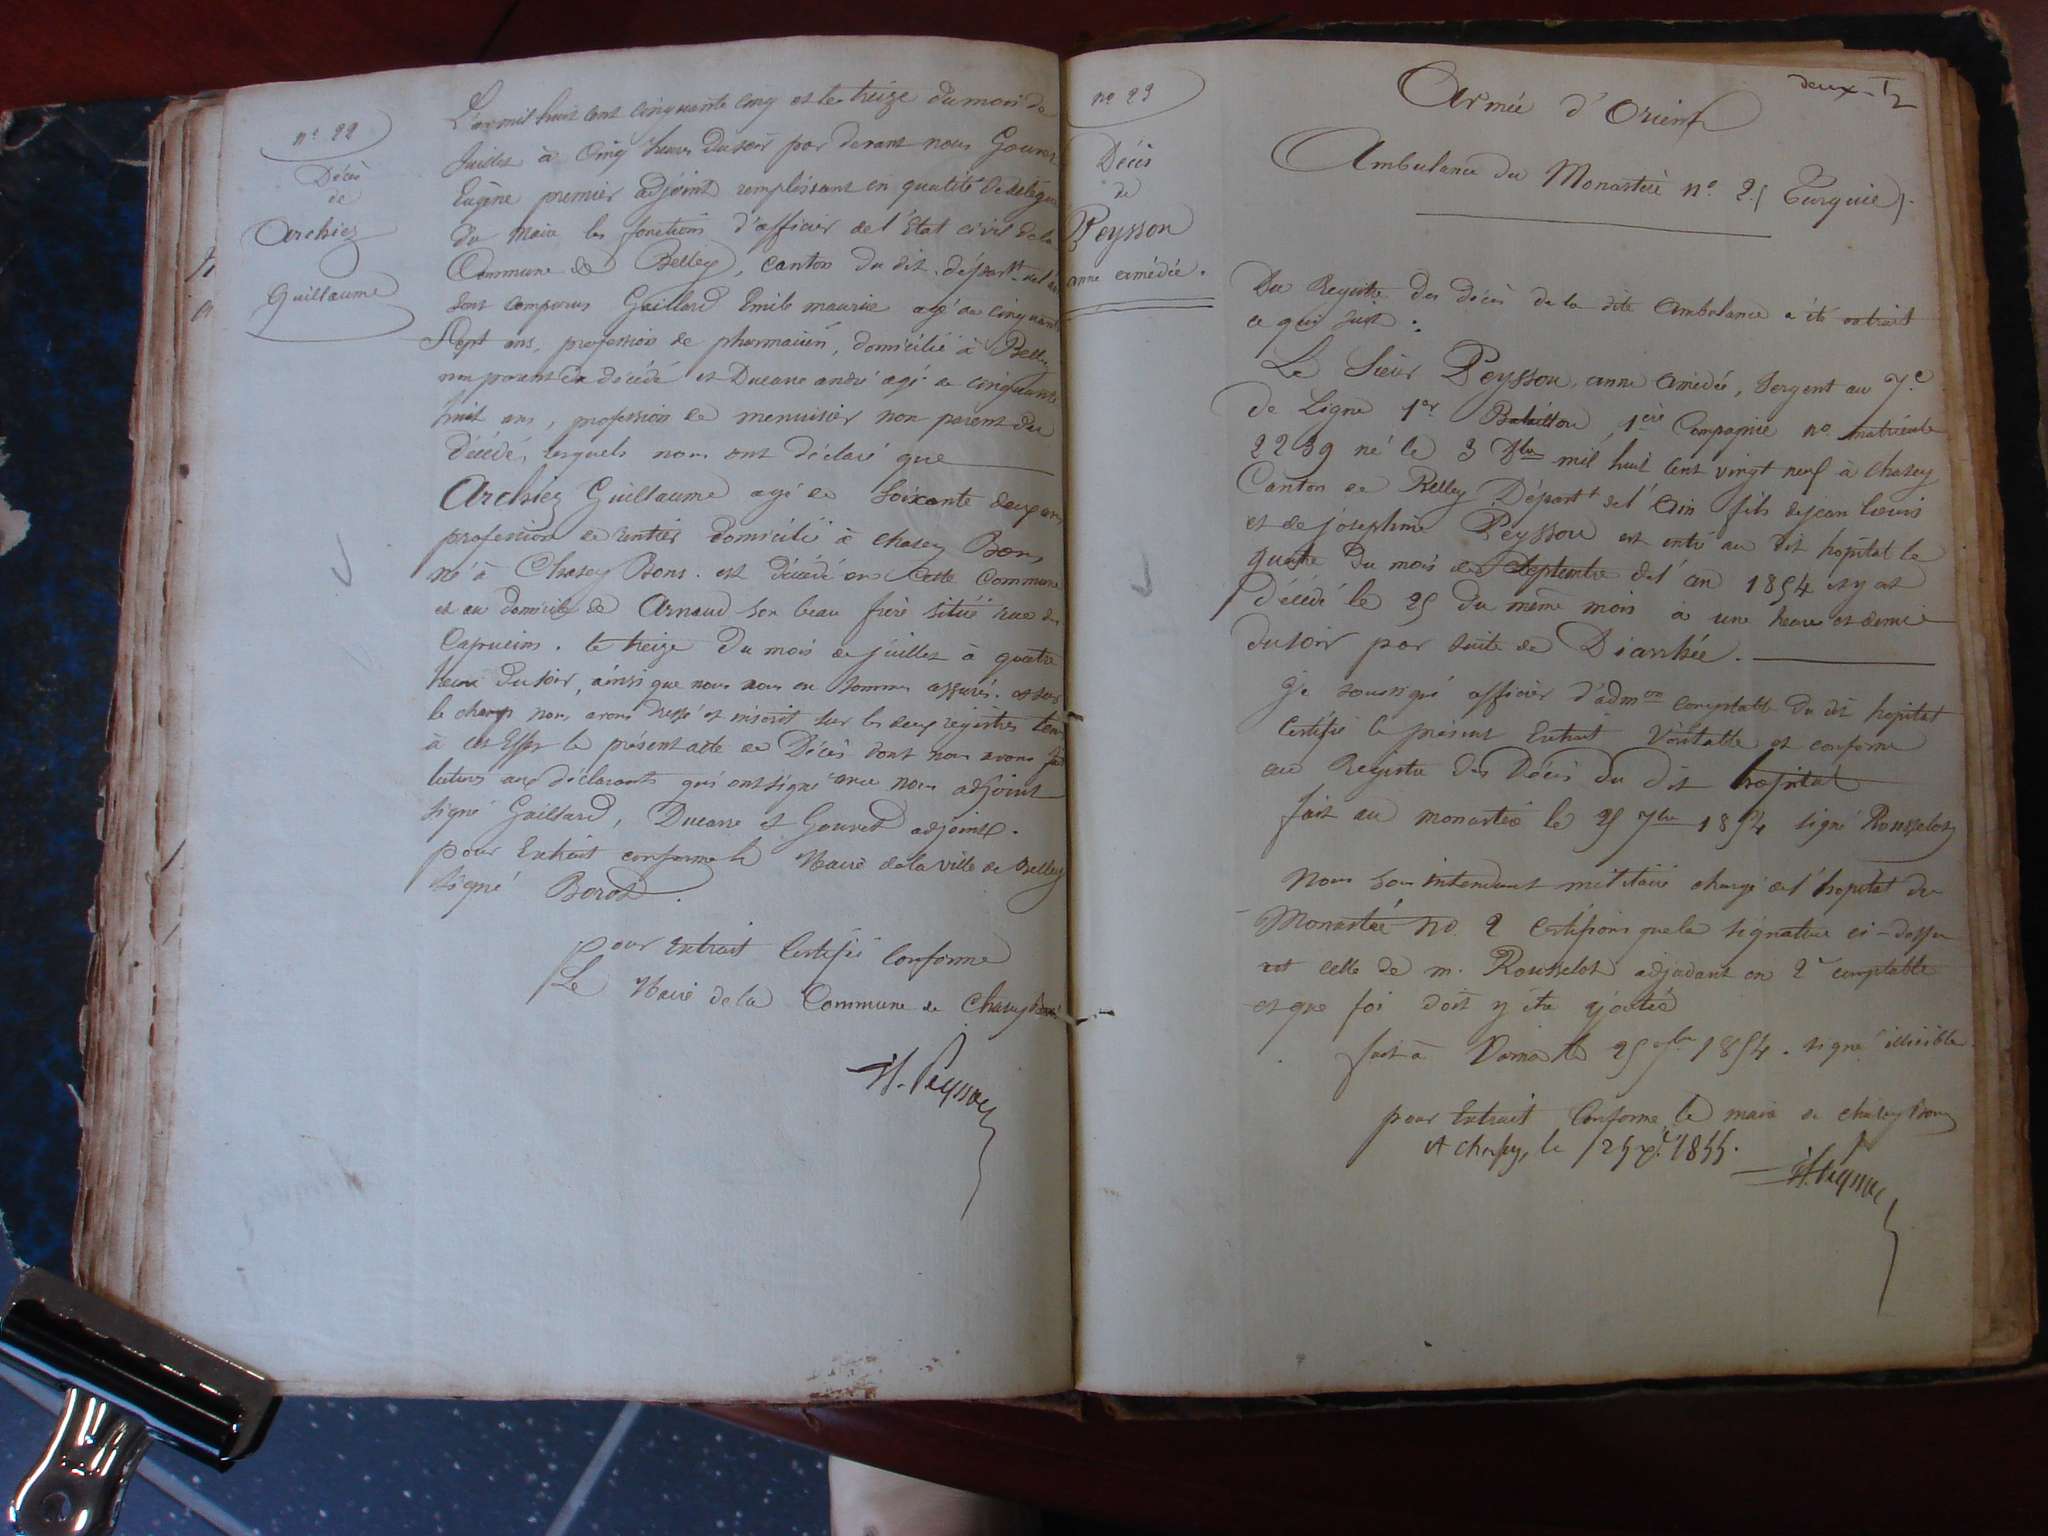 nº 22
Décès
de
Archiez
Guillaume
L'an mil huit cent cinquante cinq et le treize du mois de
Juillet à Cinq heures du soir par devant nous Gouvet
Eugène premier adjoint remplissant en qualité de délégué
du Maire les fonctions d'officier de l'Etat civil de la
Commune de Belley, canton du dit, départt de l'ain
sont comparus Gaillard Emile maurice agé de cinquante
Sept ans, profession de pharmacien, domicilié à Belley
non parent du décédé et Ducarre andré agé de cinquante
huit ans, profession de menuisier non parent du
Décédé, lesquels nous ont déclaré que
Archiez Guillaume agé de Soixante deux ans
profession de rentier domicilié à Chazey Bons,
né à Chazey Bons. est décédé en Cette Commune
et au domicile de Arnaud son beau frère située rue des
Capucins. le treize du mois de juillet à quatre
heure du soir, ainsi que nous nous en sommes assurés. et sur
le champ nous avons dressé et inscrit sur les deux registres tenus
à cet Effet le présent acte de Décès dont nous avons fait
lecture aux déclarants qui ont signé avec nous adjoint
signé Gaillard, Ducarre et Gouvet adjoint.
pour Extrait conforme le Maire de la ville de Belley
signé
pour Extrait Certifié Conforme
Le Maire de la Commune de Chazey Bons
H. Peysson
deux
nº 23
Décès
de
Peysson
anne amédée.
Armée d'Orient
Ambulance du Monastère nº 2 (Turquie).
Du Registre des décès de la dite Ambulance a été extrait
ce qui suit :
Le Sieur Peysson, anne amédée, Sergent au 7e
de Ligne 1er Bataillon, 1ère Compagnie nº matricule
2239 né le 3 Xbre mil huit cent vingt neuf à Chazey
Canton de Belley Départt de l'Ain fils de jean Louis
et de joséphine Peysson est entré au dit hopital le
quatre du mois de Septembre de l'an 1854 et y est
Décédé le 25 du même mois à une heure et demie
du soir par suite de Diarrhée.
Je soussigné officier d'admon comptable du dit hopital
Certifie le présent Extrait Véritable et conforme
au Registre des Décès du dit hopital
fait au monastère le 25 7bre 1854 signé Rousselot
Nous Sous intendant militaire chargé de l'hopital du
Monastère nº 2 Certifions que la signature ci-dessus
est celle de m. Rousselot adjudant en 2e comptable
et que foi doit y être ajoutée
fait à Varna le 25 7bre 1854. signé illisible.
pour Extrait Conforme le maire de Chazey Bons
A Chazey, le 1855.
H. Peysson